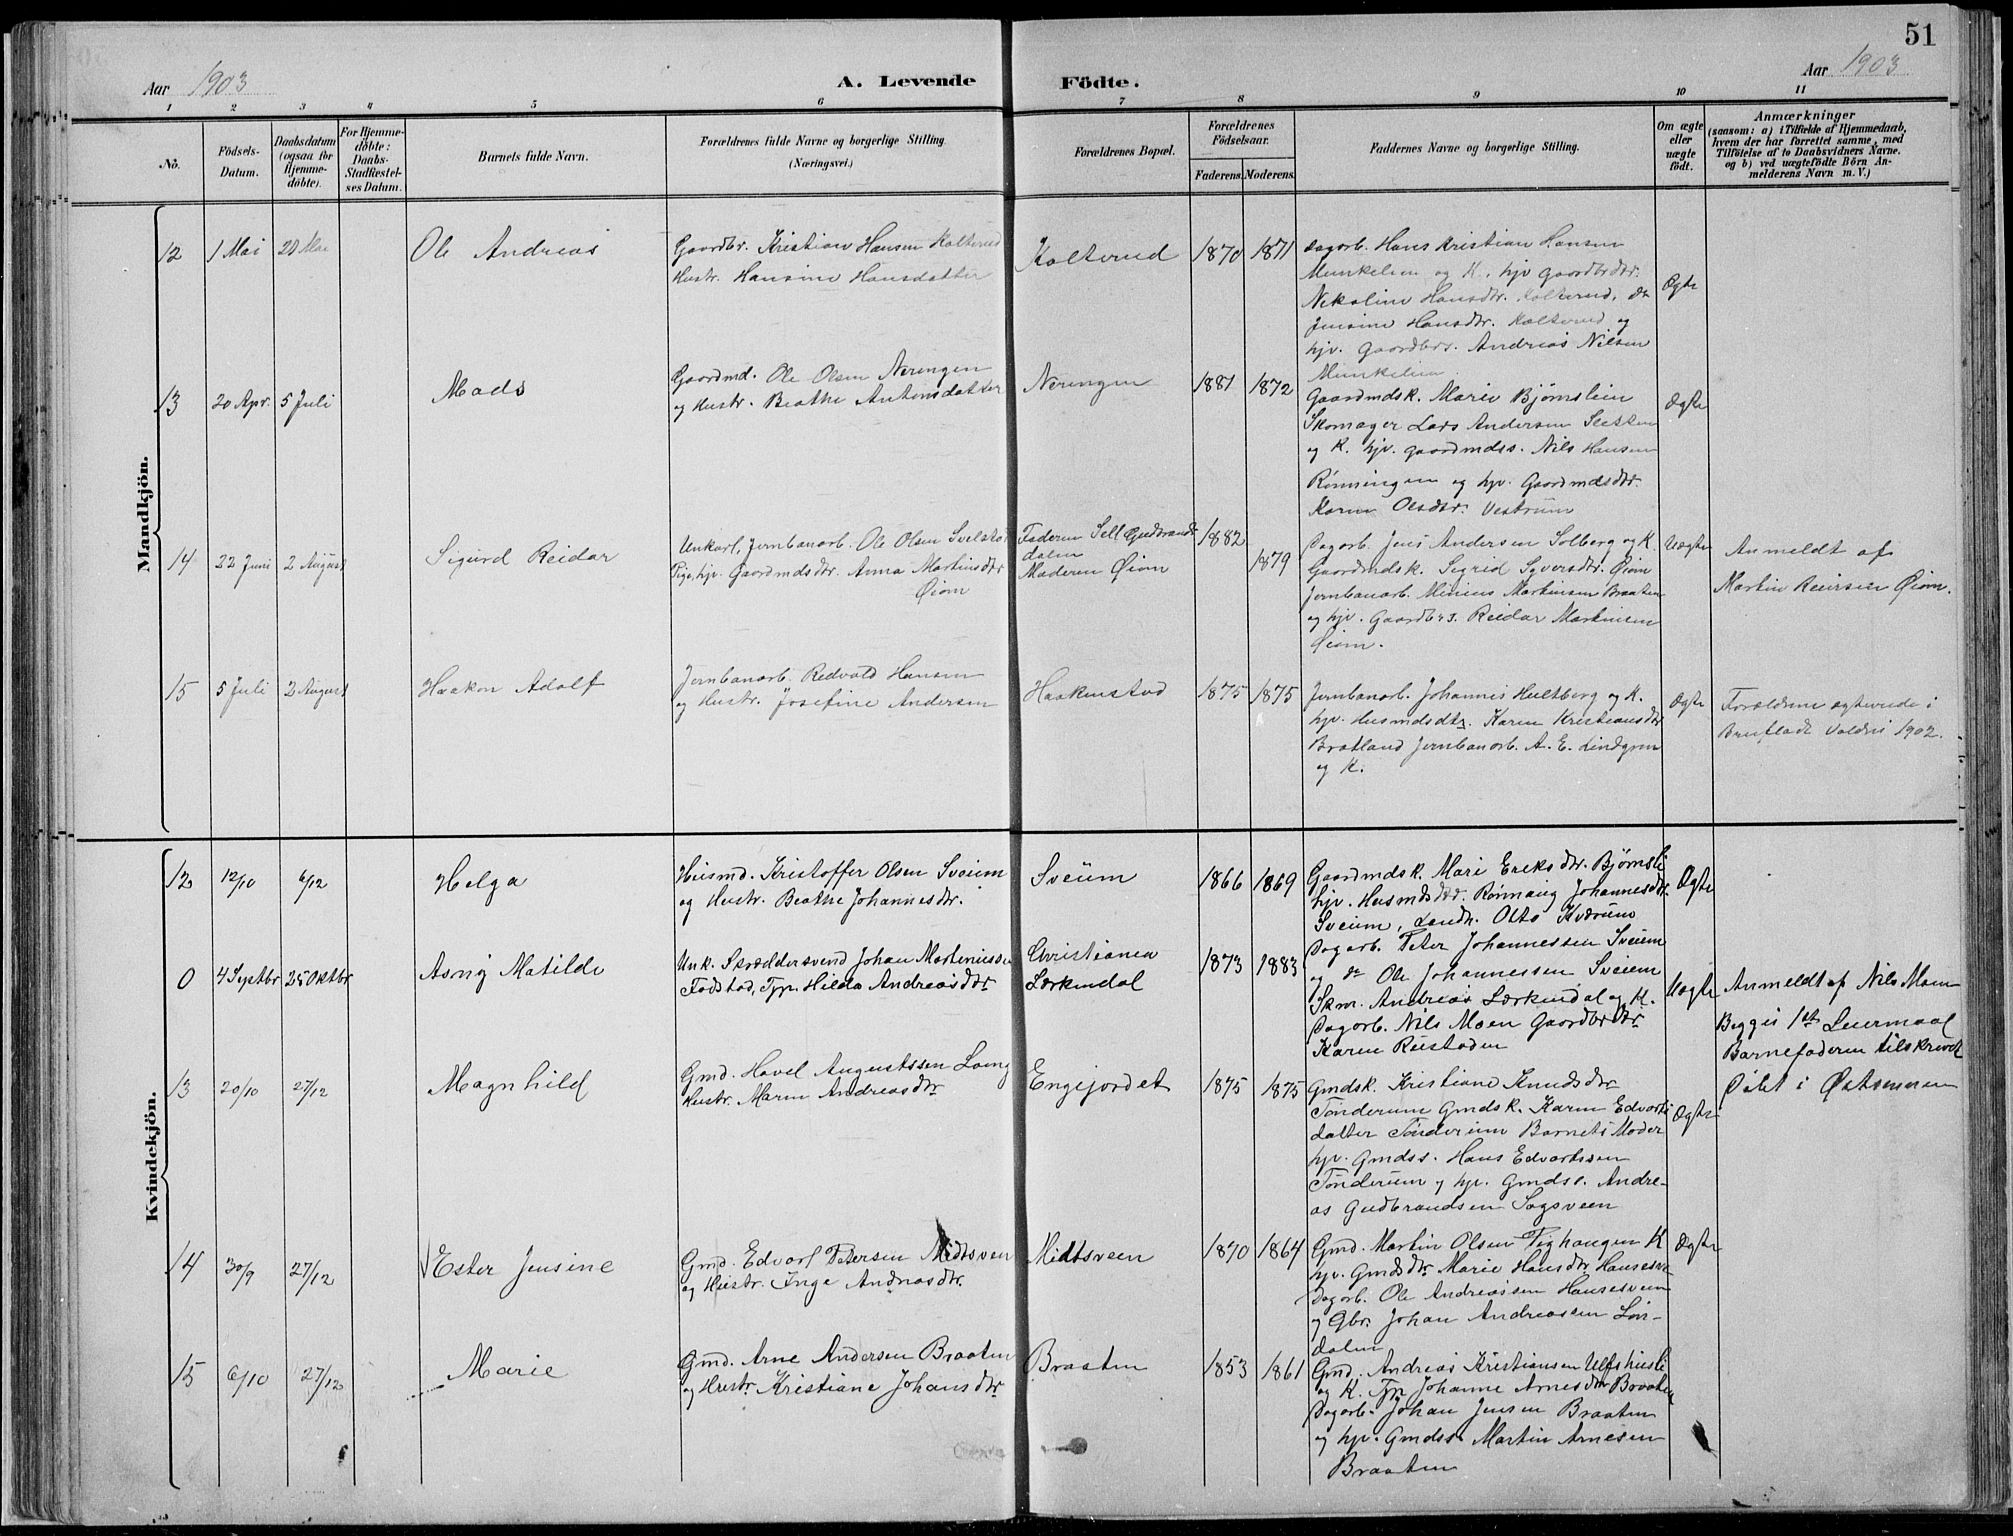 51
Aar 1903
A. Levende Födte.
Aar 1903
1 2 3 4 5 6 7 8 9 10 11
No.
Födsels-Datum.
Daabsdatum (ogsaa for Hjemme-döbte).
For Hjemme-döbte: Daabs-Stadfestel-ses Datum.
Barnets fulde Navn.
Forældrenes fulde Navne og borgerlige Stilling
(Næringsvei.)
Forældrenes Bopæl.
Forældrenes Födselsaar.
Faderens. Moderens.
Faddernes Navne og borgerlige Stilling.
Om ægte eller uægte födt.
Anmærkninger
(saasom: a) i Tilfælde af Hjemmedaab,
hvem der har forrettet samme, med
Tilföielse af to Daabsvidners Navne.
og b) ved uægtefödte Börn An-
melderens Navn m. V.)
Mandkjön.
12 1 Mai 20 Mai Ole Andreas
Gaardbr. Kristian Hansen Kolterud
Hustr. Hansine Hansdatter
Kolterud 1870 1871
Dagarb. Hans Kristian Hansen
Munkelien og K. hjv Gaardbrdtr.
Nikoline Hansdtr. Kolterud, do
Jensine Hansdtr. Kolterud og
hjv. Gaardbrs. Andreas Nilsen
Munkelien
Ægte
13 20 Apr. 5 Juli Mads
Gaardmd. Ole Olsen Neringen
og Hustr. Beathe Antonsdatter
Neringen 1881 1872
Gaardmdsk. Marie Bjørnslien
Skomager Lars Andersen Sletten
og K. hjv. gaardmdss. Nils Hansen
Rønningen og hjv. Gaardmdsdtr.
Karen Olsdtr. Vestrum
Ægte
14 22 Juni 2 August Sigurd Reidar
Unkarl, Jernbanarb. Ole Olsen Svelstad
Pige, hjv. Gaardmdsdtr. Anna Martinsdtr
Øiom
Faderen Sell Gudbrands
dalen
Moderen Øiom
1882
1879
Dagarb. Jens Andersen Solberg og K.
Gaardmdsk. Sigrid Syversdtr. Øiom
Jernbanarb. Minius Martinsen Braaten
og hjv. Gaardbrs. Reidar Martinsen
Øiom.
Uægte
Anmeldt af
Martin Reiersen Øiom.
15 5 Juli 2 August Haakon Adolf
Jernbanarb. Redvald Hansen
og Hustr. Josefine Andersen
Haakenstad 1875 1875
Jernbanarb. Johannes Hultberg og K.
hjv. Husmdsdtr. Karen Kristiansdtr
Bratland Jernbanarb. A. E. Lindgren
og K.
Ægte
Forældrene ægteviede i
Brufladt Valdres 1902.
Kvindekjön.
12 12/10 6/12 Helga
Husmd. Kristoffer Olsen Sveum
og Hustr. Beathe Johannesdtr.
Sveum 1866 1869
Gaardmdsk. Mari Eriksdtr. Bjørnsli
hjv. Husmdsdtr. Rønnaug Johannesdtr.
Sveum, Landh. Otto Kværum
Dagarb. Peter Johannessen Sveum
og do Ole Johannessen Sveum
Ægte
0 4 Septbr 25 Oktbr Asny Matilde
Unk. Skræddersvend Johan Martinussen
Fodstad, Tjp. Hilda Andreasdtr
Christiania
Lærkendal
1873 1883
Skm. Andreas Lærkendal og K.
Dagarb. Nils Moen Gaardbrdtr
Karen Reistaden
Uægte
Anmeldt af Nils Moen
Begges 1ste Leiermaal
Barnefaderen tilskrevet
Døbt i Østsinnen
13 20/10 27/12 Magnhild
Gmd. Havel Augustssen Loeng
Hustr. Maren Andreasdtr
Engejordet 1875 1875
Gmdsk. Kristiane Knudsdtr
Tønderum Gmdsk. Karen Edvards
datter Tønderum Barnets Moder
hjv. Gmdss. Hans Edvartssen
Tønderum og hjv. Gmdss. Andre-
as Gudbrandsen Sagsveen
Ægte
14 30/9 27/12 Ester Jensine
Gmd. Edvart Petersen Midtsveen
og Hustr. Inge Andreasdtr.
Midtsveen 1870 1864
Gmd. Martin Olsen Tighaugen K
hjv. Gmdsdtr Marie Hansdtr
Dagarb. Ole Andreassen Hansesveen
og Gbr. Johan Andreassen Lin-
dalen
Ægte
15 6/10 27/12 Marie
Gmd. Arne Andersen Braaten
og Hustr. Kristiane Johansdtr
Braaten 1853 1861
Gmd. Andreas Kristiansen Ulfshusli
og K. Tjp Johanne Arnesdtr Braaten
Dagarb. Johan Jensen Braaten
og hjv. Gmdss. Martin Arnesen
Braaten